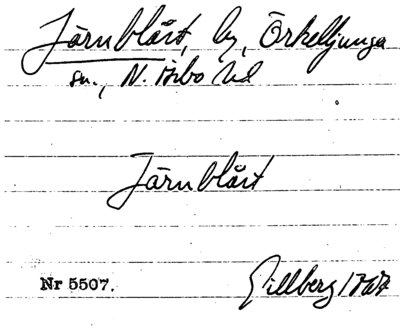 Järnblåst, by, Örkelljunga
sn., N. Åsbo hd
Järnblåst
Nr 5507.
Gillberg 1767